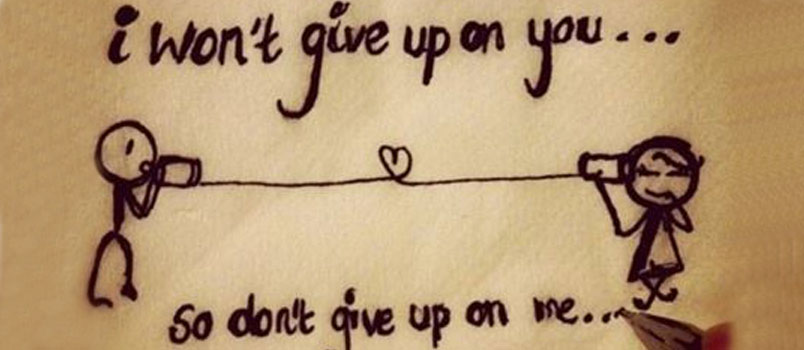 i won't give up on you...
so don't give up on me...